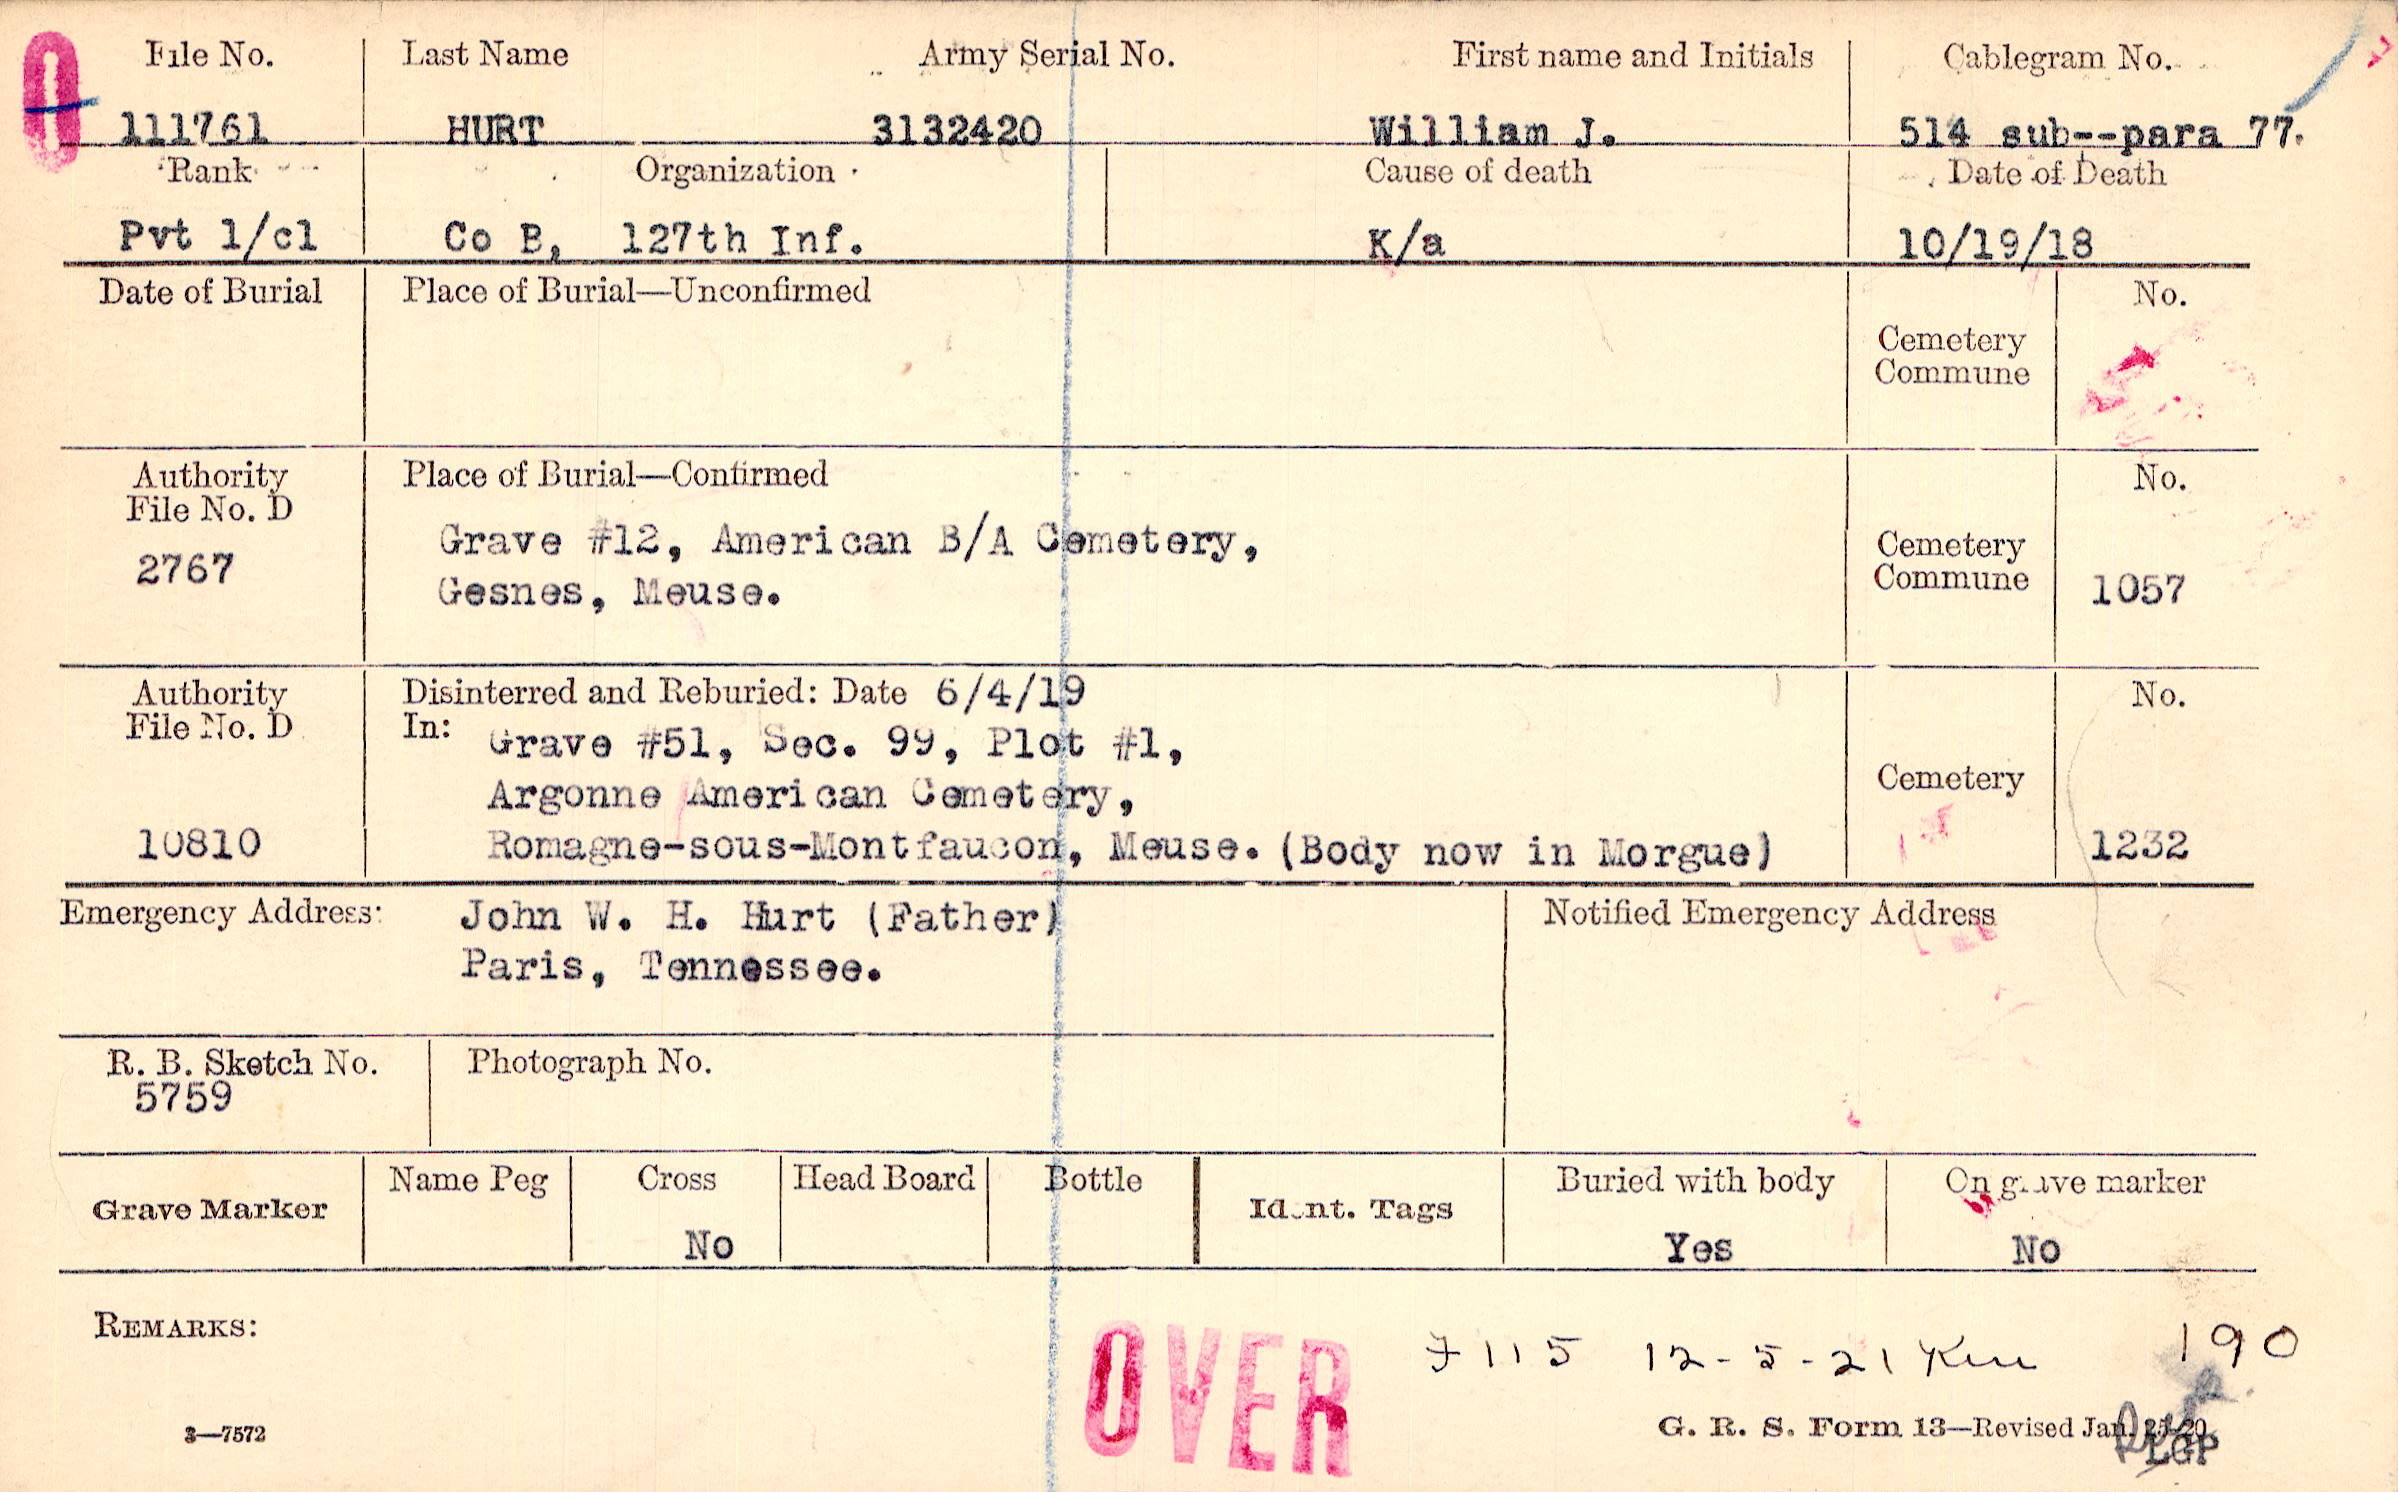 O
File No. Last Name Army Serial No. First name and Initials Cablegram No.
111761 HURT 3132420 William J. 514 sub--para 77.
Rank Organization Cause of death Date of Death
Pvt 1/cl Co B, 127th Inf. K/a 10/19/18
Date of Burial Place of Burial—Unconfirmed No.
Cemetery
Commune
Authority Place of Burial—Confirmed No.
File No. D
Grave #12, American B/A Cemetery, Cemetery
2767 Gesnes, Meuse. Commune 1057
Authority Disinterred and Reburied: Date 6/4/19 No.
File No. D In: Grave #51, Sec. 99, Plot #1,
Argonne American Cemetery, Cemetery
10810 Romagne-sous-Montfaucon, Meuse. (Body now in Morgue) 1232
Emergency Address: John W. H. Hurt (Father) Notified Emergency Address
Paris, Tennessee.
R. B. Sketch No. Photograph No.
5759
Grave Marker Name Peg Cross Head Board Bottle Ident. Tags Buried with body On grave marker
No Yes No
REMARKS:
OVER 7115 12-5-21 190
3—7572 G. R. S. Form 13—Revised Jan.
LGP